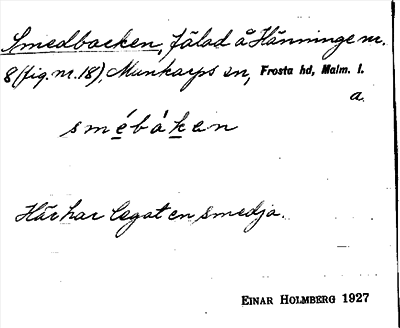 Smedbacken, fälad å Hänninge nr.
8 (fig. nr. 18), Munkarps sn, Frosta hd, Malm. l.
a.
smébáken
Här har legat en smedja.
EINAR HOLMBERG 1927